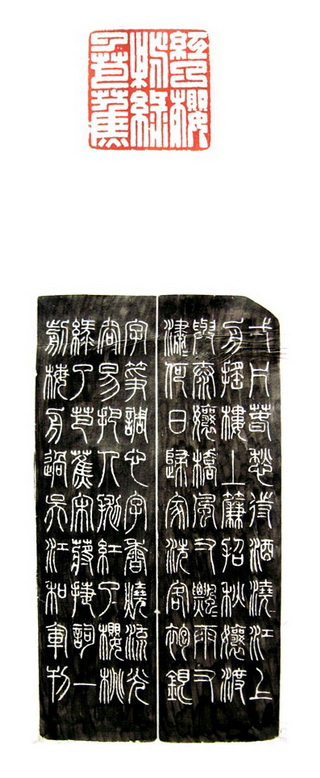 紅了櫻
桃綠
了芭蕉
弌片萅愁待酒澆江上
舟搖樓上簾招秋孃渡
與泰孃橋風又飄雨又
瀟何日歸家洗客袍銀
字笙調心字香燒流光
容易把人拋紅了櫻桃
綠了芭蕉宋蔣捷詞一
剪梅舟過吳江和軍刊